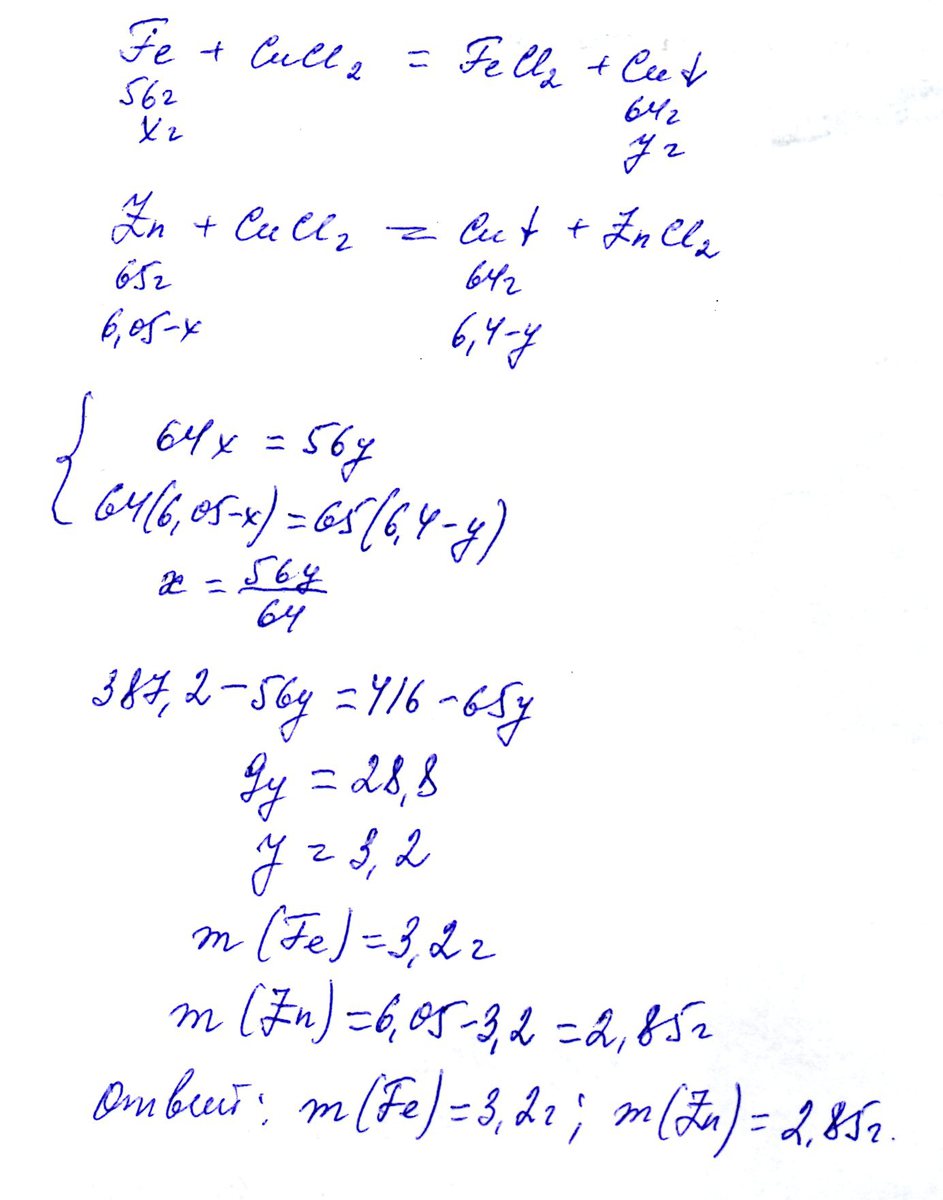 Fe + CuCl₂ = FeCl₂ + Cu↓
56г 64г
xг yг
Zn + CuCl₂ = Cu↓ + ZnCl₂
65г 64г
6,05-x 6,4-y
{ 64x = 56y
64(6,05-x) = 65(6,4-y)
x = 56y/64
387,2 - 56y = 416 - 65y
9y = 28,8
y = 3,2
m(Fe) = 3,2г
m(Zn) = 6,05 - 3,2 = 2,85г
Ответ: m(Fe) = 3,2г; m(Zn) = 2,85г.